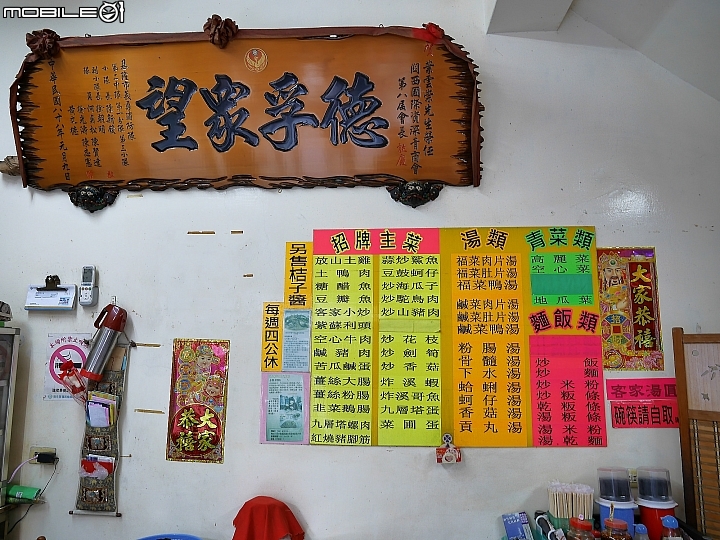 mobile01
葉雲榮先生榮任
關西國際資深青商會
第八屆會長
德孚眾望
中華民國八十八年元月九日
另售桔子醬
每週四公休
招牌主菜
放山土雞
土鴨肉
糖醋魚
豆瓣魚
客家小炒
紫蘇利頭
空心牛肉
鹹豬肉
苦瓜鹹蛋
薑絲大腸
薑絲粉腸
韭菜鵝腸
九層塔螺肉
紅燒豬腳筋
蒜炒鯊魚
豆鼓蚵仔
炒海瓜子
炒駝鳥肉
炒山豬肉
炒花枝
炒劍筍
炒香菇
炸溪蝦
炸溪哥魚
九層塔蛋
菜圃蛋
湯類
福菜肉片湯
福菜肚片湯
福菜鴨湯
鹹菜肉片湯
鹹菜肚片湯
鹹菜鴨湯
粉腸湯
骨髓湯
下水湯
蛤蜊湯
蚵仔湯
香菇湯
貢丸湯
青菜類
高麗菜
空心菜
地瓜葉
麵飯類
炒飯
炒麵
炒米粉
炒粄條
乾粄條
湯粄條
湯米粉
湯乾麵
大家恭禧
大家恭禧
客家湯圓
碗筷請自取